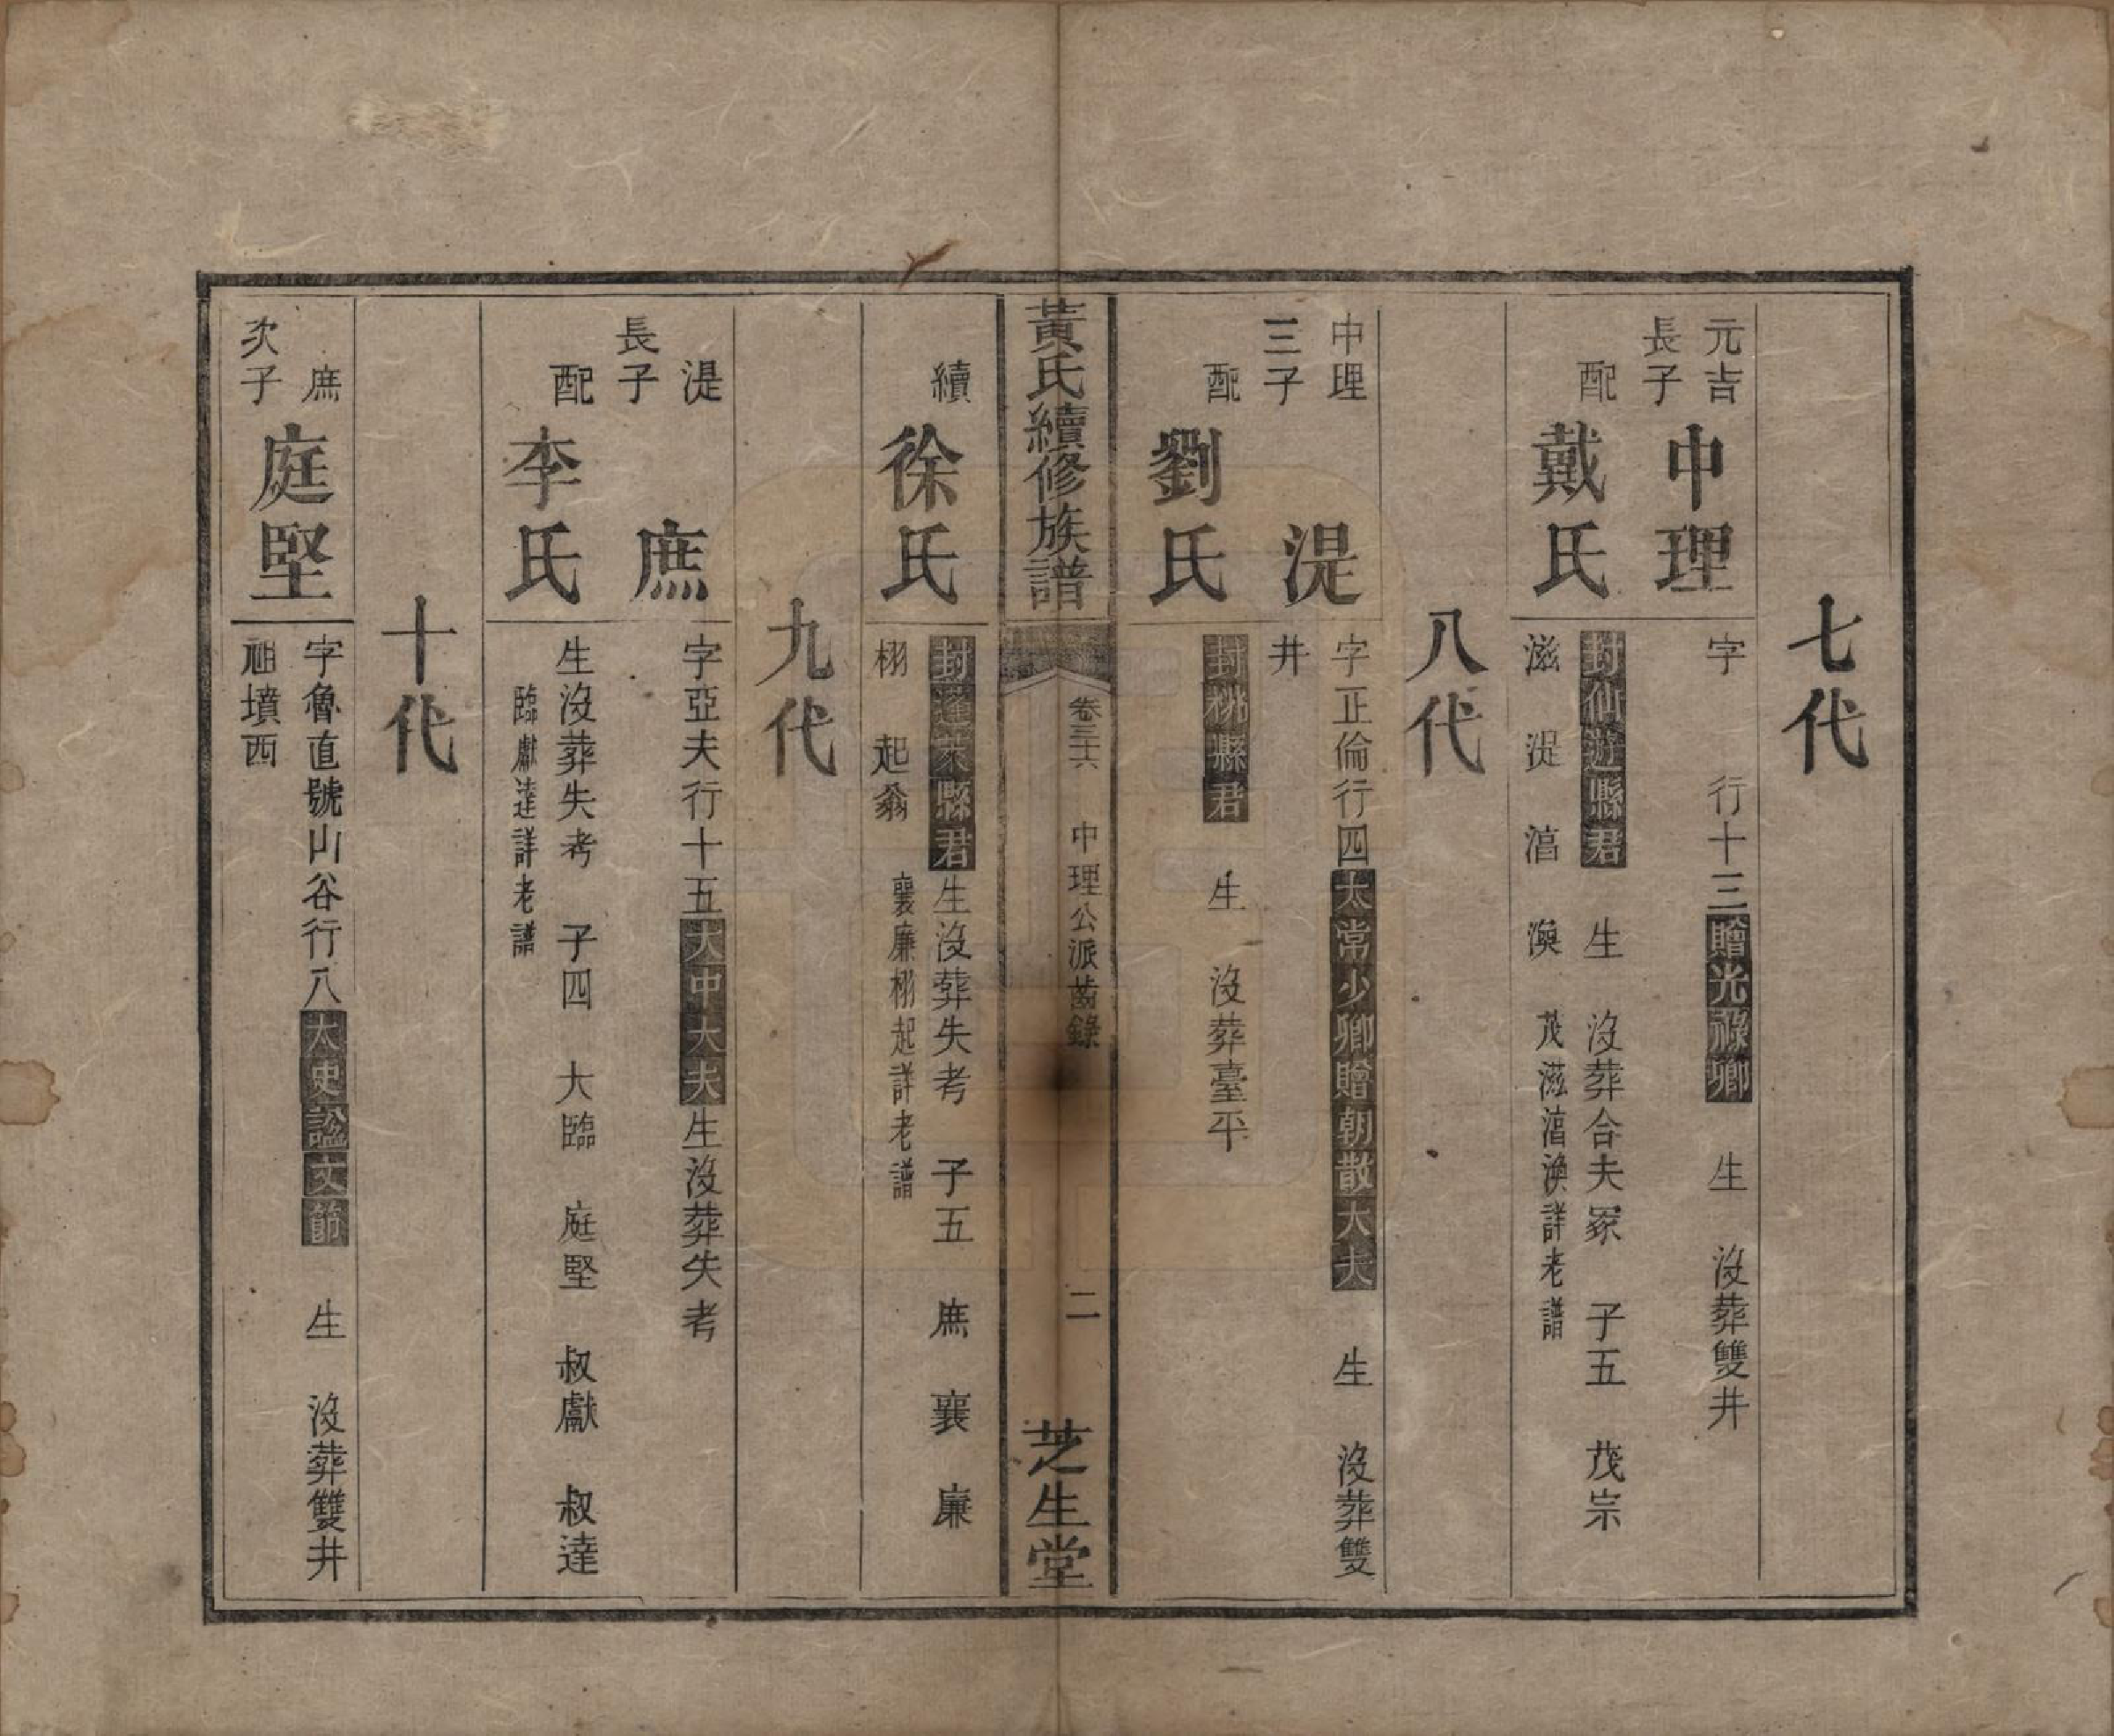 七代
元吉長子
中理
字 行十三贈光祿卿 生 沒葬雙井
配
戴氏
封仙遊縣君 生 沒葬合夫冢 子五 茂宗
滋 湜 湻 渙 茂滋湻渙詳老譜
八代
中理三子
湜
字正倫行四太常少卿贈朝散大夫 生 沒葬雙
井
配
劉氏
封桃縣君 生 沒葬臺平
黃氏續修族譜
卷三十六 中理公派齒錄
二
芝生堂
續
徐氏
封蓬萊縣君生沒葬失考 子五 庶 襄 廉
栩 起翁 襄廉栩起詳老譜
九代
湜長子
庶
字亞夫行十五大中大夫生沒葬失考
配
李氏
生沒葬失考 子四 大臨 庭堅 叔獻 叔達
臨獻達詳老譜
十代
庶次子
庭堅
字魯直號山谷行八太史謚文節 生 沒葬雙井
祖墳西